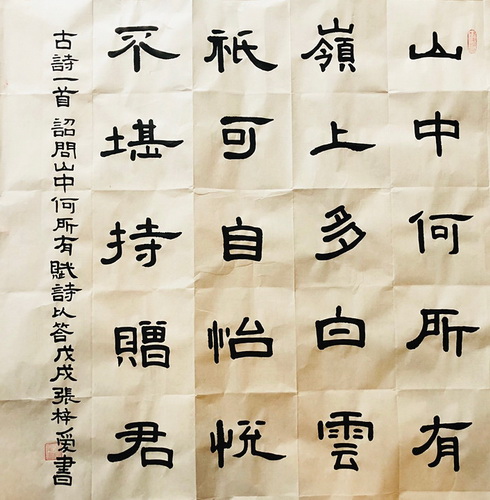 山中何所有
嶺上多白雲
祇可自怡悦
不堪持贈君
古詩一首 詔問山中何所有賦詩以答戊戌張梓受書